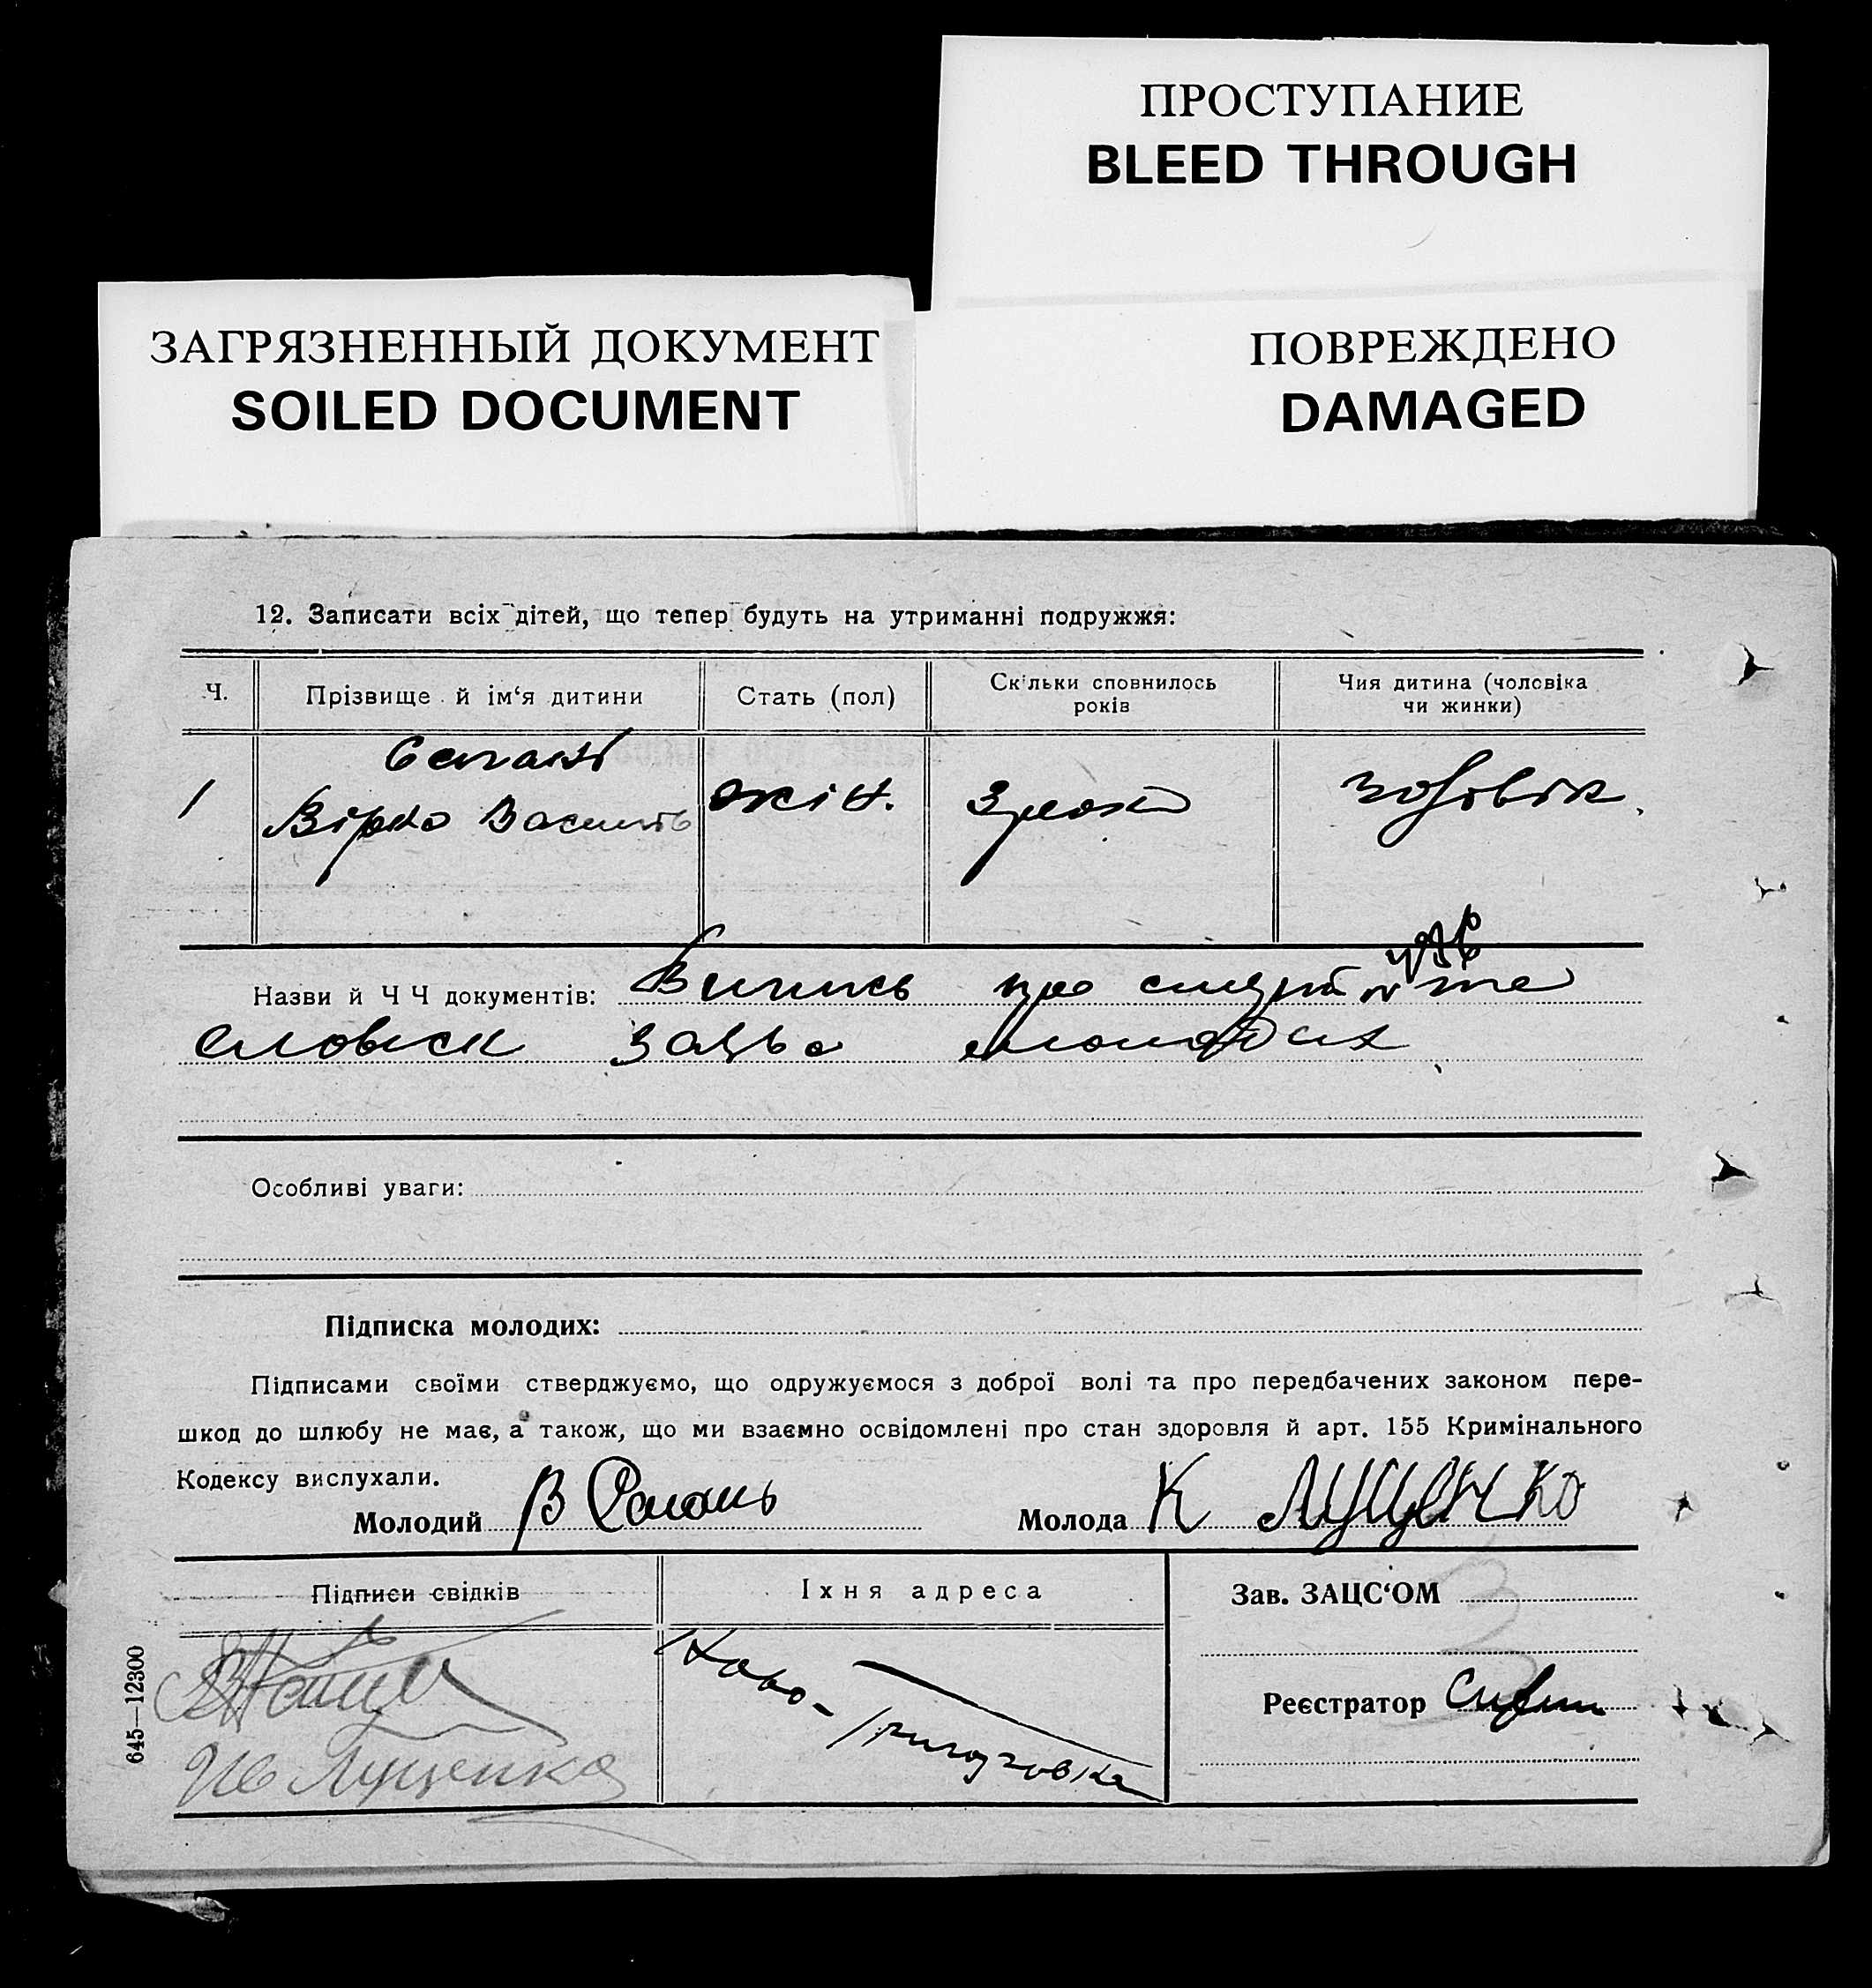 ПРОСТУПАНИЕ
BLEED THROUGH
ЗАГРЯЗНЕННЫЙ ДОКУМЕНТ
SOILED DOCUMENT
ПОВРЕЖДЕНО
DAMAGED
12. Записати всіх дітей, що тепер будуть на утриманні подружжя:
Ч.
Прізвище й ім‘я дитини
Стать (пол)
Скільки сповнилось
років
Чия дитина (чоловіка
чи жинки)
1
Вірка
жін.
3 роки
чоловік.
Назви й Ч Ч документів: Випись про смерть та
словеск заява молодих
Особливі уваги:
Підписка молодих:
Підписами своїми стверджуємо, що одружуємося з доброї волі та про передбачених законом пере-
шкод до шлюбу не має, а також, що ми взаємно освідомлені про стан здоровля й арт. 155 Кримінального
Кодексу вислухали.
Молодий В
Молода К Лущенко
Підписи свідків
Іхня адреса
Зав. ЗАЦС‘ОМ
Реєстратор
Ново-
Григоровка
Ив Лущенко
645—12300